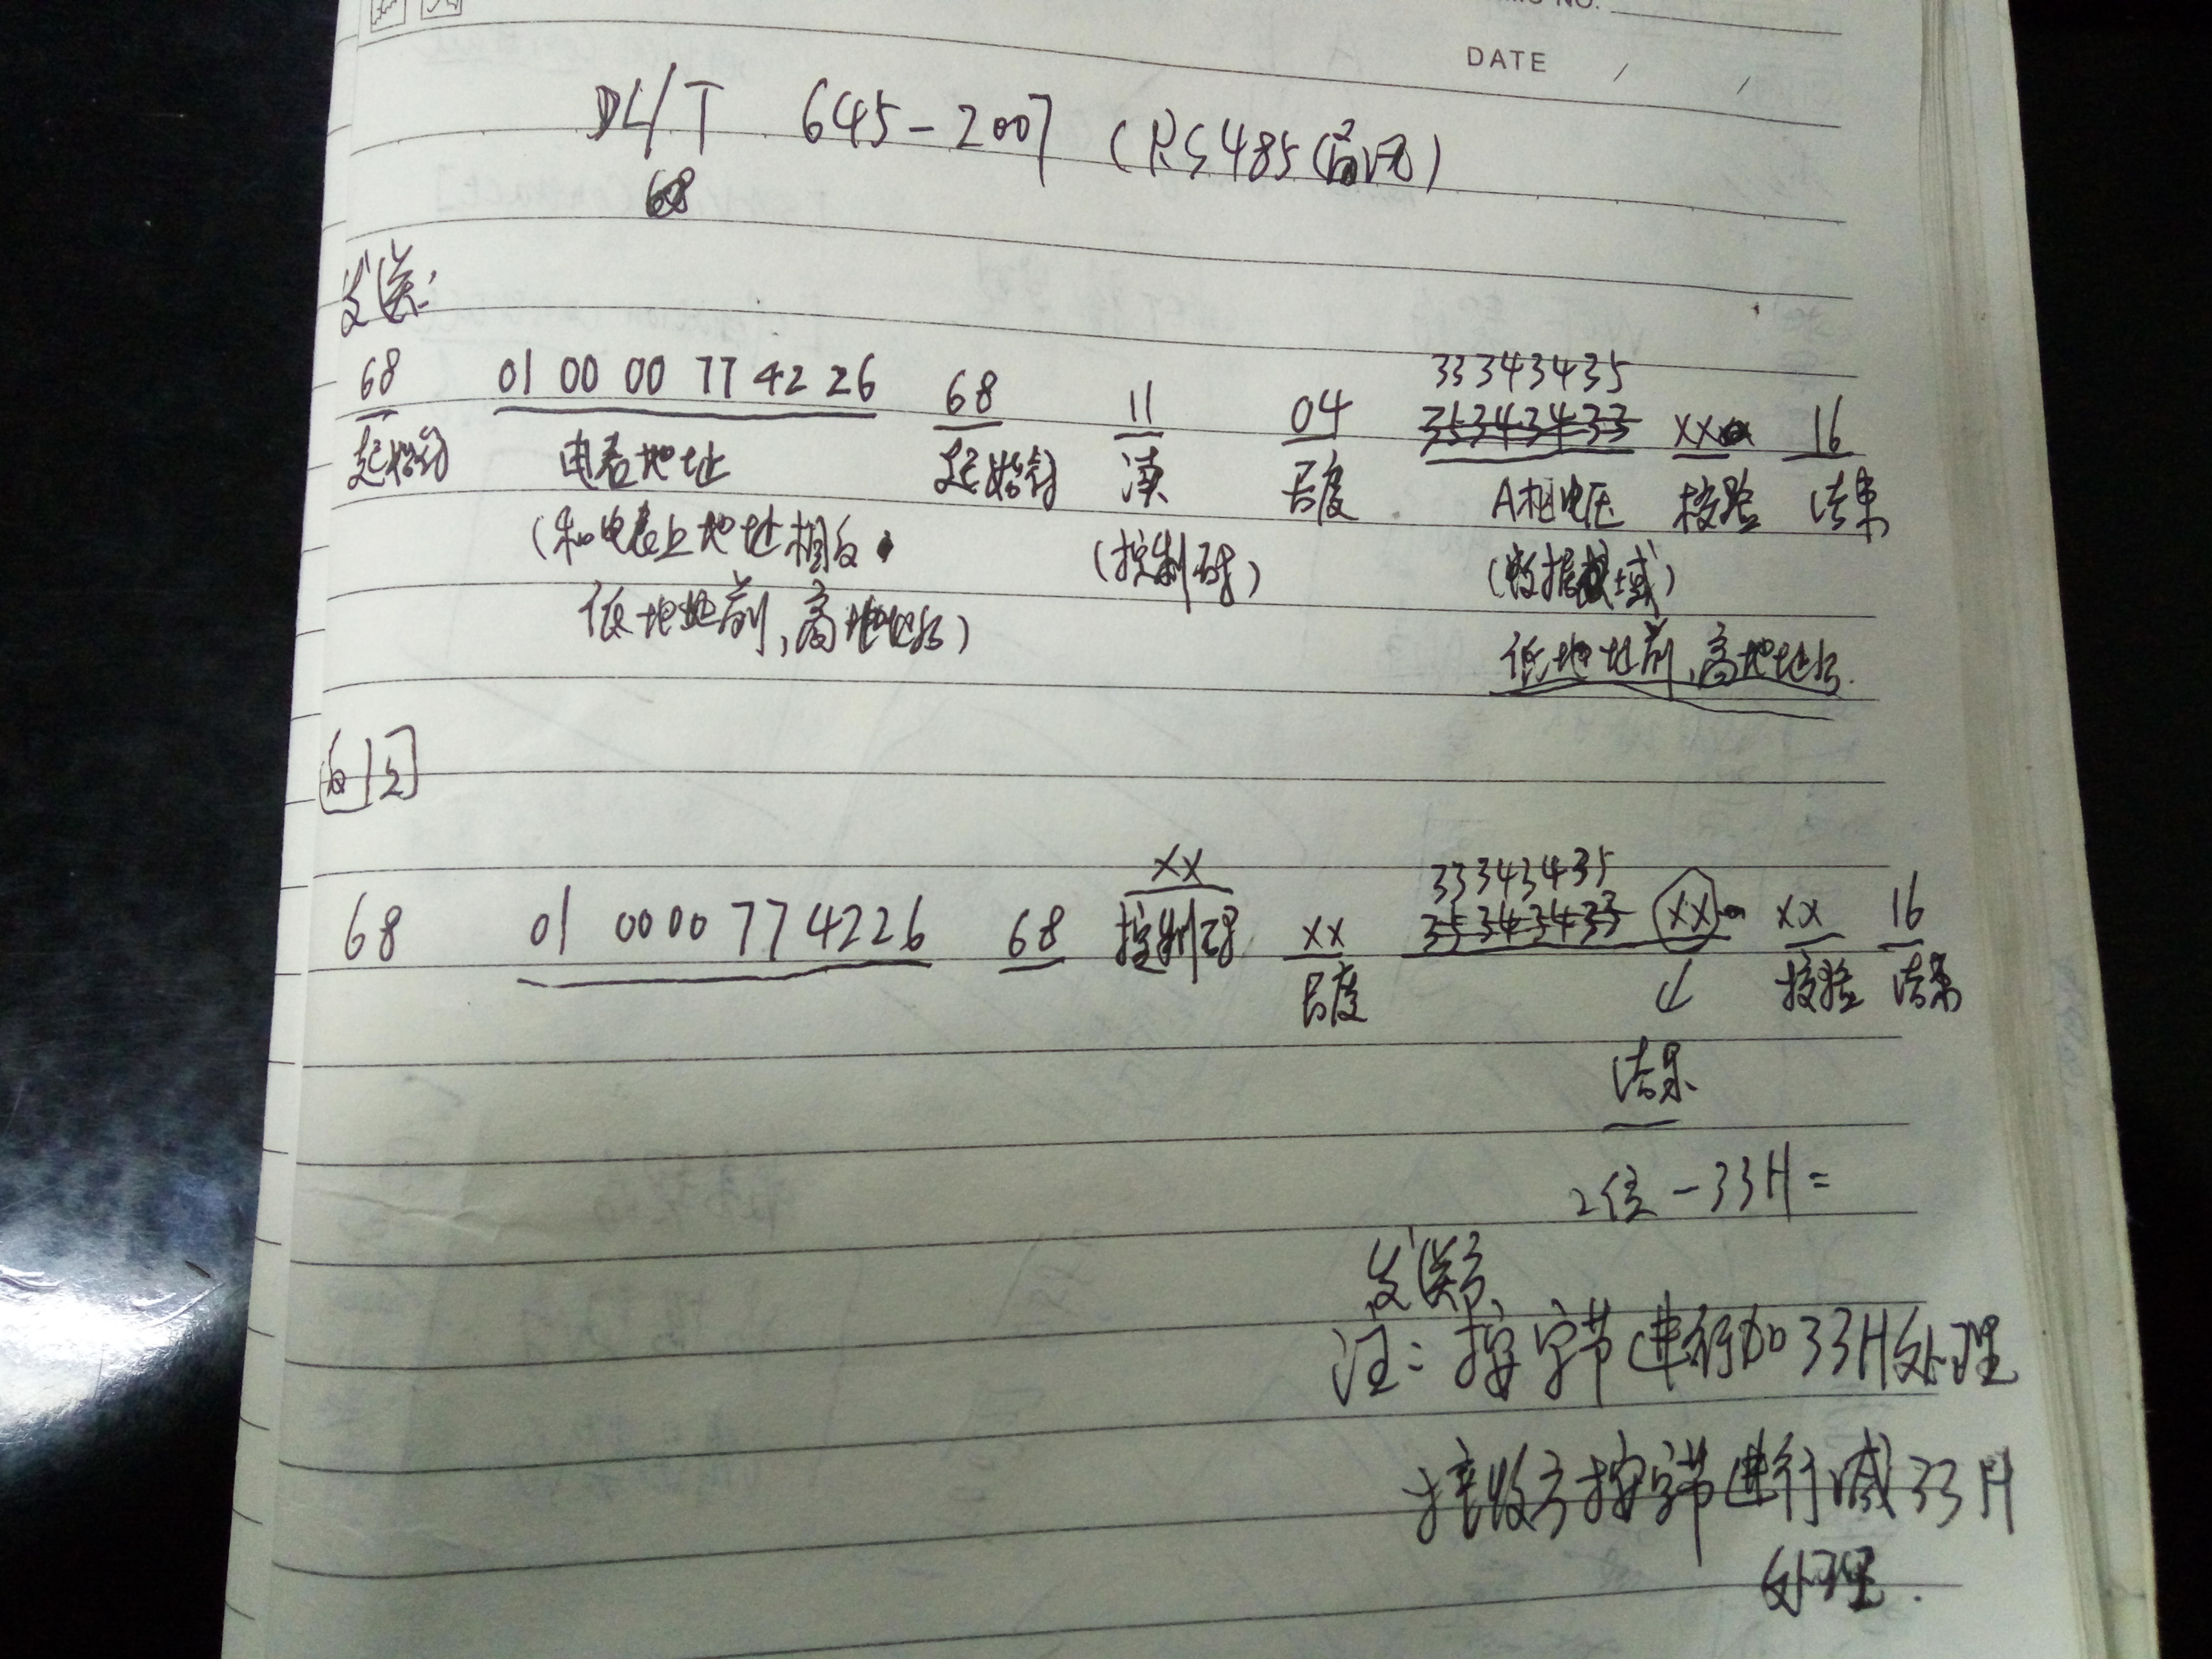 DATE / /
DL/T 645-2007 (RS485
68
发送:
33343435
68 01 00 00 77 42 26 68 11 04 35343433 xx 16
起始符 电表地址 起始符 读 长度 A相电压 校验 结束
(和电表上地址相反 (控制码) (数据域)
低地址前,高地址后) 低地址前,高地址后.
xx 33343435
68 01 0000 774226 68 控制码 xx 35343433 xx xx 16
长度 ↓ 校验 结束
结果
2位 -33H =
发送方
注: 按字节进行加33H处理
接收方按字节进行减33H
处理.